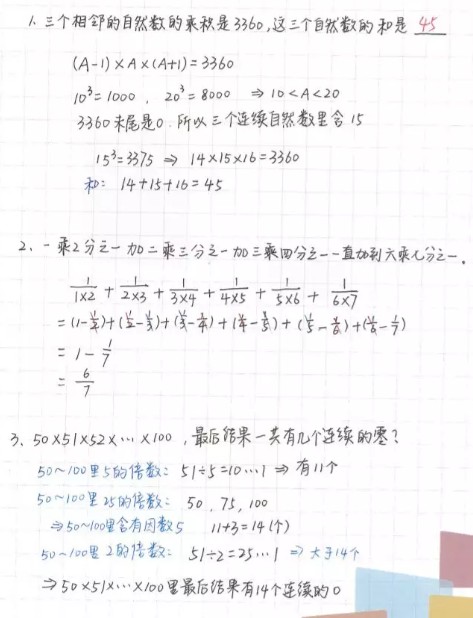 1. 三个相邻的自然数的乘积是3360,这三个自然数的和是 45
(A-1)×A×(A+1)=3360
10³=1000 , 20³=8000 ⇒ 10<A<20
3360末尾是0. 所以三个连续自然数里含15
15³=3375 ⇒ 14×15×16=3360
和: 14+15+16=45
2、一乘2分之一加二乘三分之一加三乘四分之一一直加到六乘七分之一.
1/1×2 + 1/2×3 + 1/3×4 + 1/4×5 + 1/5×6 + 1/6×7
=(1-1/2)+(1/2-1/3)+(1/3-1/4)+(1/4-1/5)+(1/5-1/6)+(1/6-1/7)
= 1-1/7
= 6/7
3、50×51×52×…×100 ,最后结果一共有几个连续的零?
50~100里5的倍数: 51÷5=10…1 ⇒ 有11个
50~100里25的倍数: 50、75、100
⇒50~100里含有因数5 11+3=14(个)
50~100里2的倍数: 51÷2=25…1 ⇒ 大于14个
⇒50×51×…×100里最后结果有14个连续的0